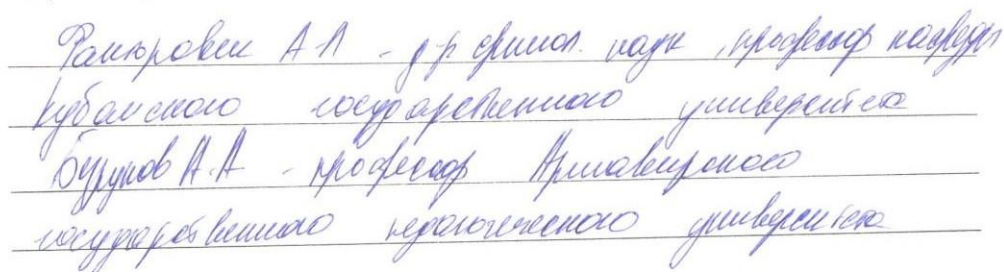 А.Л. - д-р филол. наук, профессор кафедры
Кубанского государственного университета
Бурунов А.А. - профессор Армавирского
государственного педагогического университета